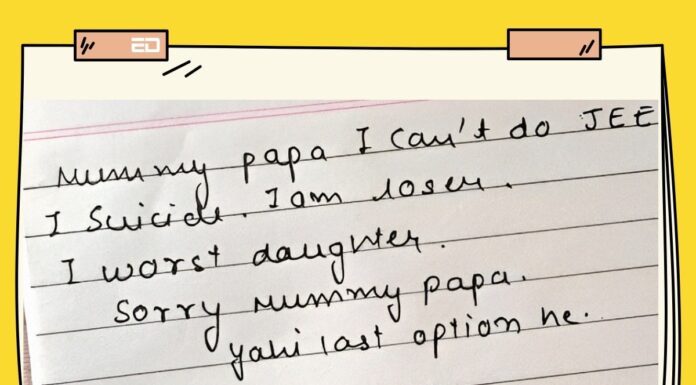 ED
Mummy papa I can't do JEE
I suicide. I am loser.
I worst daughter.
Sorry Mummy papa.
yahi last option he.